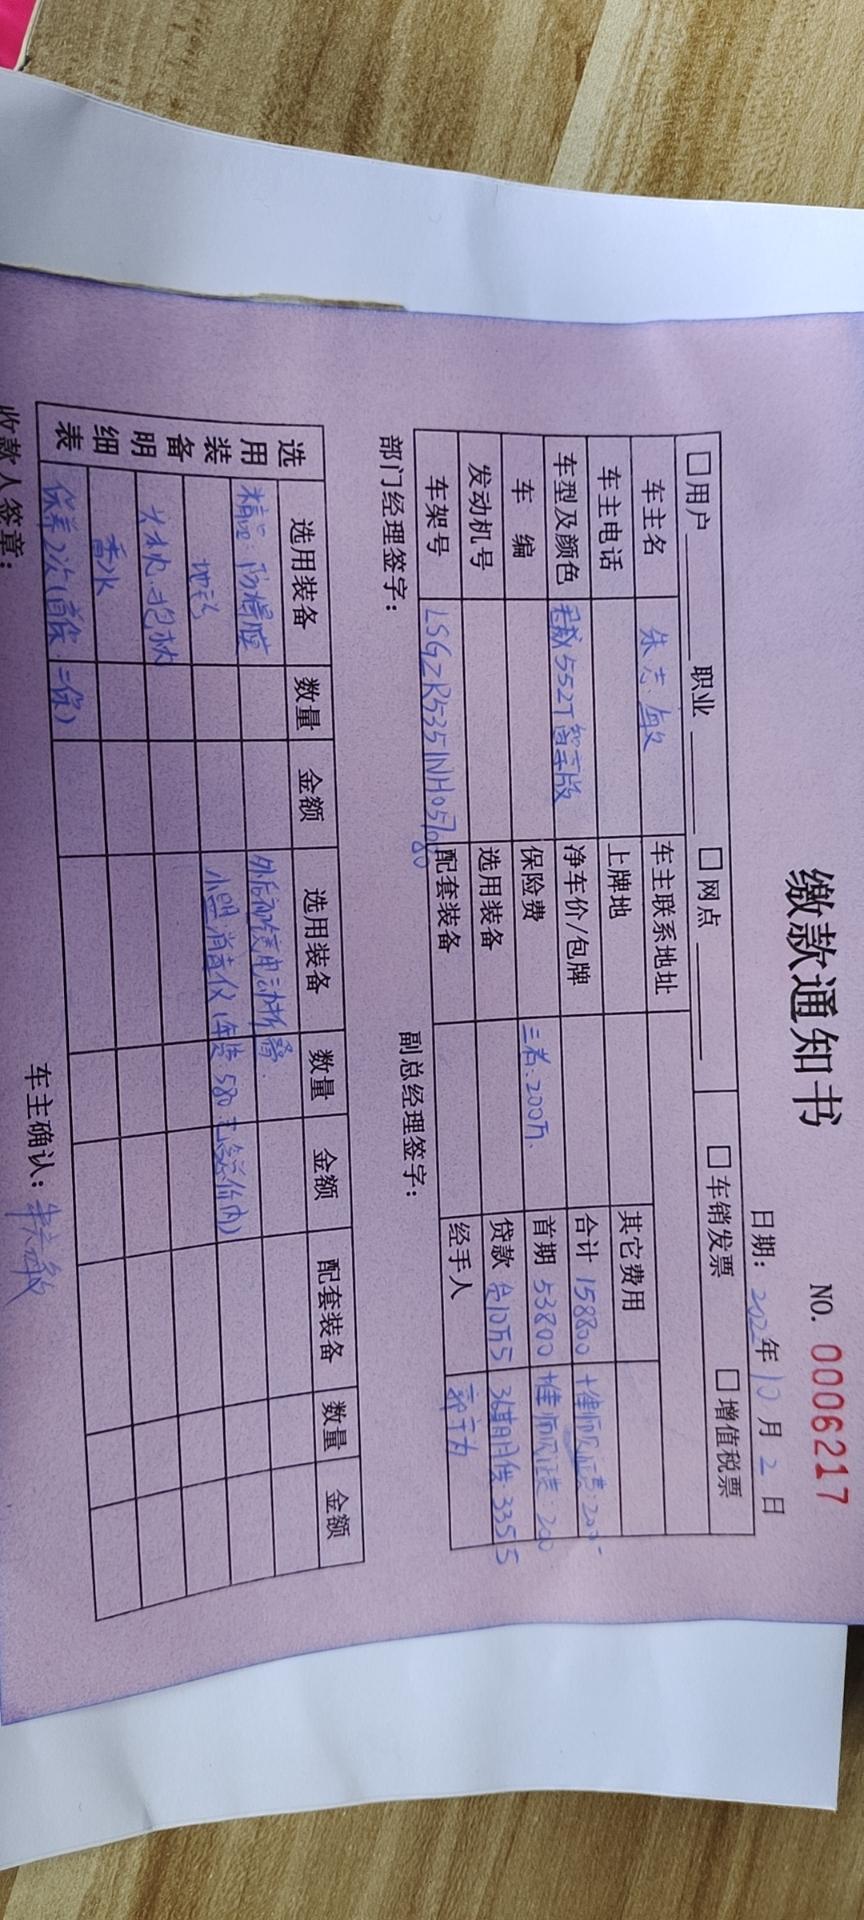 缴款通知书
NO. 0006217
日期: 2022年10月2日
□用户 职业 □网点 □车销发票 □增值税票
车主名 朱志敏 车主联系地址
车主电话 上牌地 其它费用
车型及颜色 君威552T 净车价/包牌 合计 158800 +律师见证费:200
车编 保险费 三者:200万 首期 53800 +律师见证费:200
发动机号 选用装备 贷款 10万5 36期月供:3355
车架号 LSGZR5351NH057080 配套装备 经手人
部门经理签字: 副总经理签字:
选用装备明细表
选用装备 数量 金额 选用装备 数量 金额 配套装备 数量 金额
精品:防爆膜 电动折叠
地毯 消毒仪 580 已含总价内)
抱枕
香水
保养2次(首保 二保)
收款人签章: 车主确认: 朱志敏